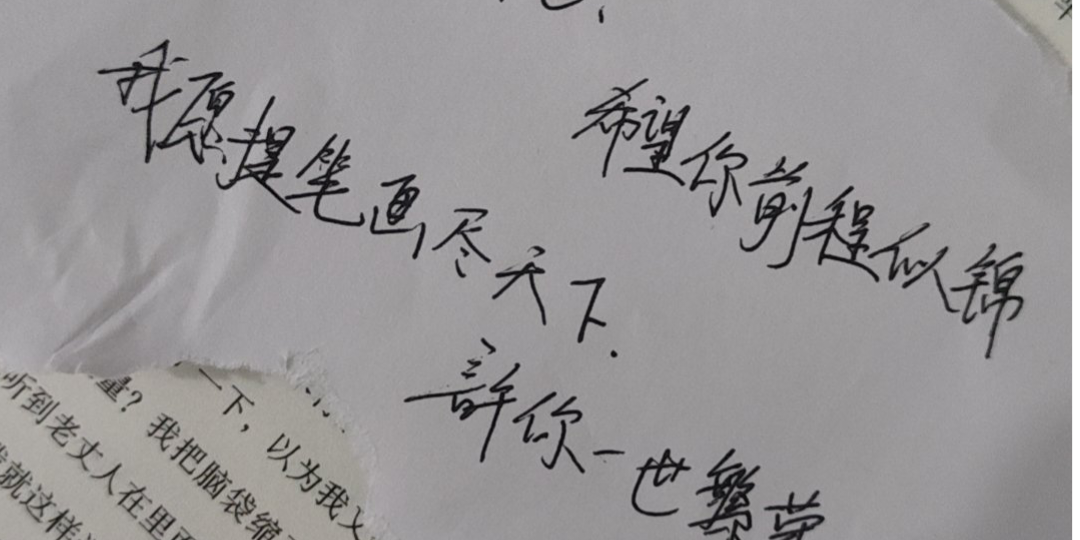 我愿提笔画尽天下.
許你一世繁荣
希望你前程似锦
一下,以为我又
量?我把脑袋缩
听到老丈人在里面
就这样